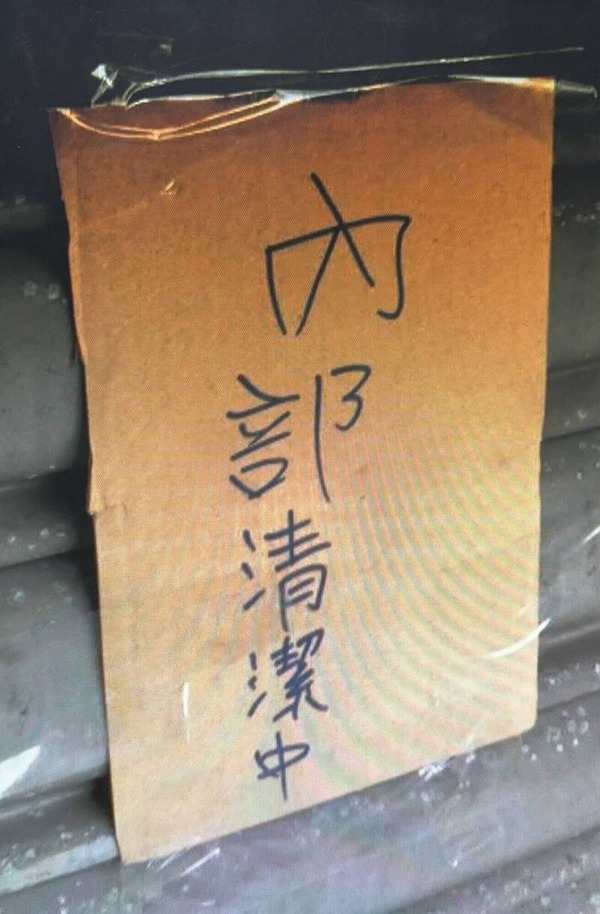 內部清潔中